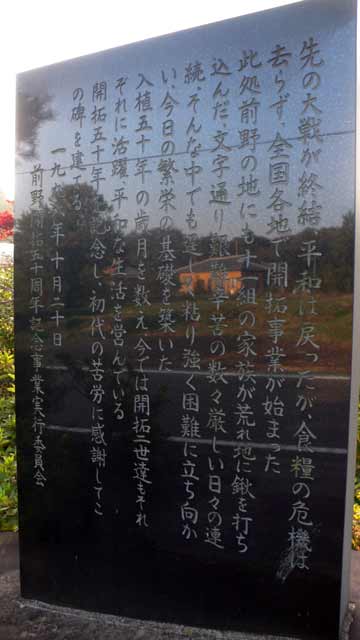 先の大戦が終結、平和は戻ったが、食糧の危機は
去らず、全国各地で開拓事業が始まった
此処前野の地にも十一組の家族が荒れ地に鍬を打ち
込んだ文字通り艱難辛苦の数々厳しい日々の連
続、そんな中でも逞しく粘り強く困難に立ち向か
い、今日の繁栄の基礎を築いた
入植五十年の歳月を数え、今では開拓二世達もそれ
ぞれに活躍、平和な生活を営んでいる
開拓五十年を記念し、初代の苦労に感謝してこ
の碑を建てる。
一九九 年十月二十日
前野開拓五十周年記念事業実行委員会